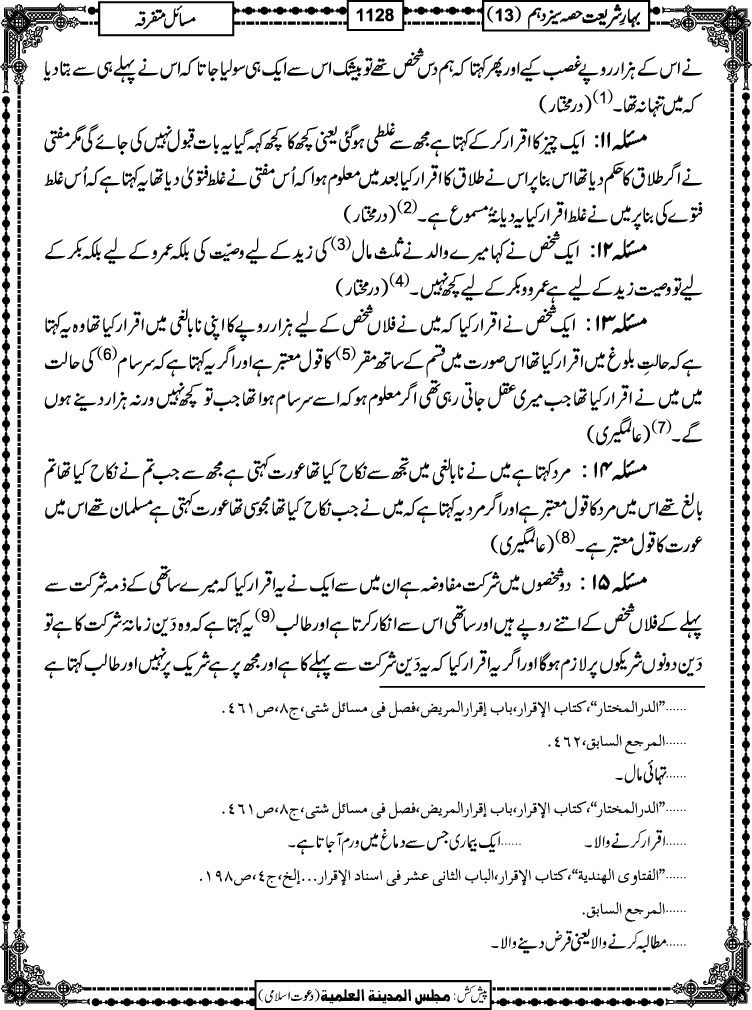 بہارِ شریعت حصہ سیزدہم (13)
1128
مسائل متفرقہ
نے اس کے ہزار روپے غصب کیے اور پھر کہتا کہ ہم دس شخص تھے تو بیشک اس سے ایک ہی سو لیا جاتا کہ اس نے پہلے ہی سے بتا دیا
کہ میں تنہا نہ تھا۔(1) (درمختار)
مسئلہ ۱۱: ایک چیز کا اقرار کر کے کہتا ہے مجھ سے غلطی ہوگئی یعنی کچھ کا کچھ کہہ گیا یہ بات قبول نہیں کی جائے گی مگر مفتی
نے اگر طلاق کا حکم دیا تھا اس بنا پر اس نے طلاق کا اقرار کیا بعد میں معلوم ہوا کہ اُس مفتی نے غلط فتویٰ دیا تھا یہ کہتا ہے کہ اُس غلط
فتوے کی بنا پر میں نے غلط اقرار کیا یہ دیانۃً مسموع ہے۔(2) (درمختار)
مسئلہ ۱۲: ایک شخص نے کہا میرے والد نے ثلث مال(3) کی زید کے لیے وصیّت کی بلکہ عمرو کے لیے بلکہ بکر کے
لیے تو وصیت زید کے لیے ہے عمرو و بکر کے لیے کچھ نہیں۔(4) (درمختار)
مسئلہ ۱۳: ایک شخص نے اقرار کیا کہ میں نے فلاں شخص کے لیے ہزار روپے کا اپنی نابالغی میں اقرار کیا تھا وہ یہ کہتا
ہے کہ حالتِ بلوغ میں اقرار کیا تھا اس صورت میں قسم کے ساتھ مقر(5) کا قول معتبر ہے اور اگر یہ کہتا ہے کہ سرسام(6) کی حالت
میں میں نے اقرار کیا تھا جب میری عقل جاتی رہی تھی اگر معلوم ہو کہ اسے سرسام ہوا تھا جب تو کچھ نہیں ورنہ ہزار دینے ہوں
گے۔(7) (عالمگیری)
مسئلہ ۱۴: مرد کہتا ہے میں نے نابالغی میں تجھ سے نکاح کیا تھا عورت کہتی ہے مجھ سے جب تم نے نکاح کیا تھا تم
بالغ تھے اس میں مرد کا قول معتبر ہے اور اگر مرد یہ کہتا ہے کہ میں نے جب نکاح کیا تھا مجوسی تھا عورت کہتی ہے مسلمان تھے اس میں
عورت کا قول معتبر ہے۔(8) (عالمگیری)
مسئلہ ۱۵: دو شخصوں میں شرکت مفاوضہ ہے ان میں سے ایک نے یہ اقرار کیا کہ میرے ساتھی کے ذمہ شرکت سے
پہلے کے فلاں شخص کے اتنے روپے ہیں اور ساتھی اس سے انکار کرتا ہے اور طالب(9) یہ کہتا ہے کہ وہ دَین زمانۂ شرکت کا ہے تو
دَین دونوں شریکوں پر لازم ہوگا اور اگر یہ اقرار کیا کہ یہ دَین شرکت سے پہلے کا ہے اور مجھ پر ہے شریک پر نہیں اور طالب کہتا ہے
......"الدرالمختار"، کتاب الإقرار، باب إقرارالمریض، فصل فی مسائل شتی، ج٨، ص٤٦١.
......المرجع السابق، ٤٦٢.
......تہائی مال۔
......"الدرالمختار"، کتاب الإقرار، باب إقرارالمریض، فصل فی مسائل شتی، ج٨، ص٤٦١.
......اقرار کرنے والا۔ ......ایک بیماری جس سے دماغ میں ورم آجاتا ہے۔
......"الفتاوی الهندية"، کتاب الإقرار، الباب الثانی عشر فی اسناد الإقرار...إلخ، ج٤، ص١٩٨.
......المرجع السابق.
......مطالبہ کرنے والا یعنی قرض دینے والا۔
پیش کش: مجلس المدینة العلمیة (دعوت اسلامی)